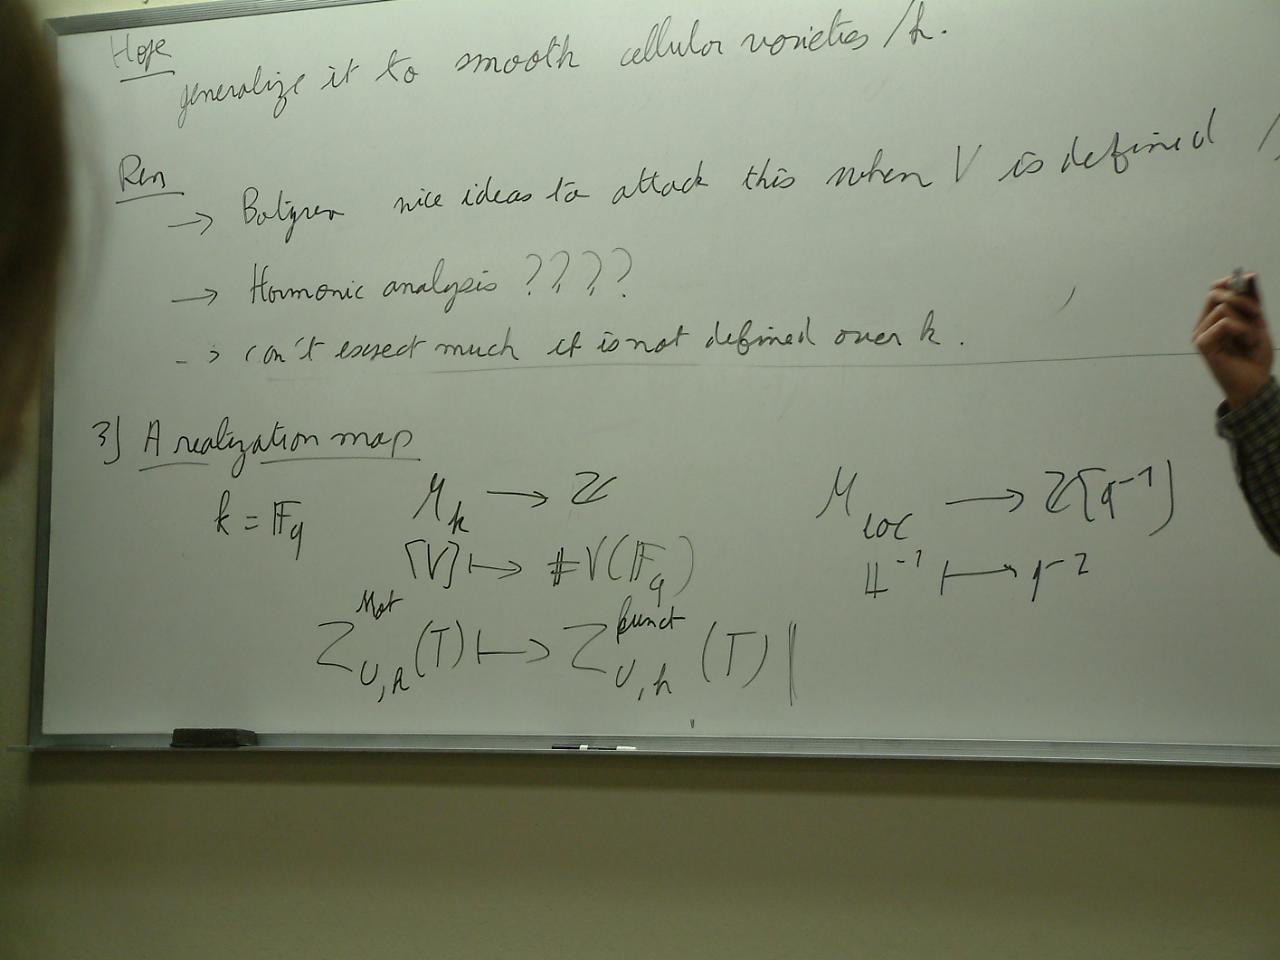 Hope
generalize it to smooth cellular varieties /k.
Rem
→ Batyrev nice ideas to attack this when V is defined /
→ Harmonic analysis ????
→ can't expect much if is not defined over k.
3) A realization map
k = 𝔽q ℳk → ℤ ℳloc → ℤ[q⁻¹]
[V] ↦ #V(𝔽q) 𝕃⁻¹ ↦
Z^{Mot}_{U,h}(T) ↦ Z^{funct}_{U,h}(T) |